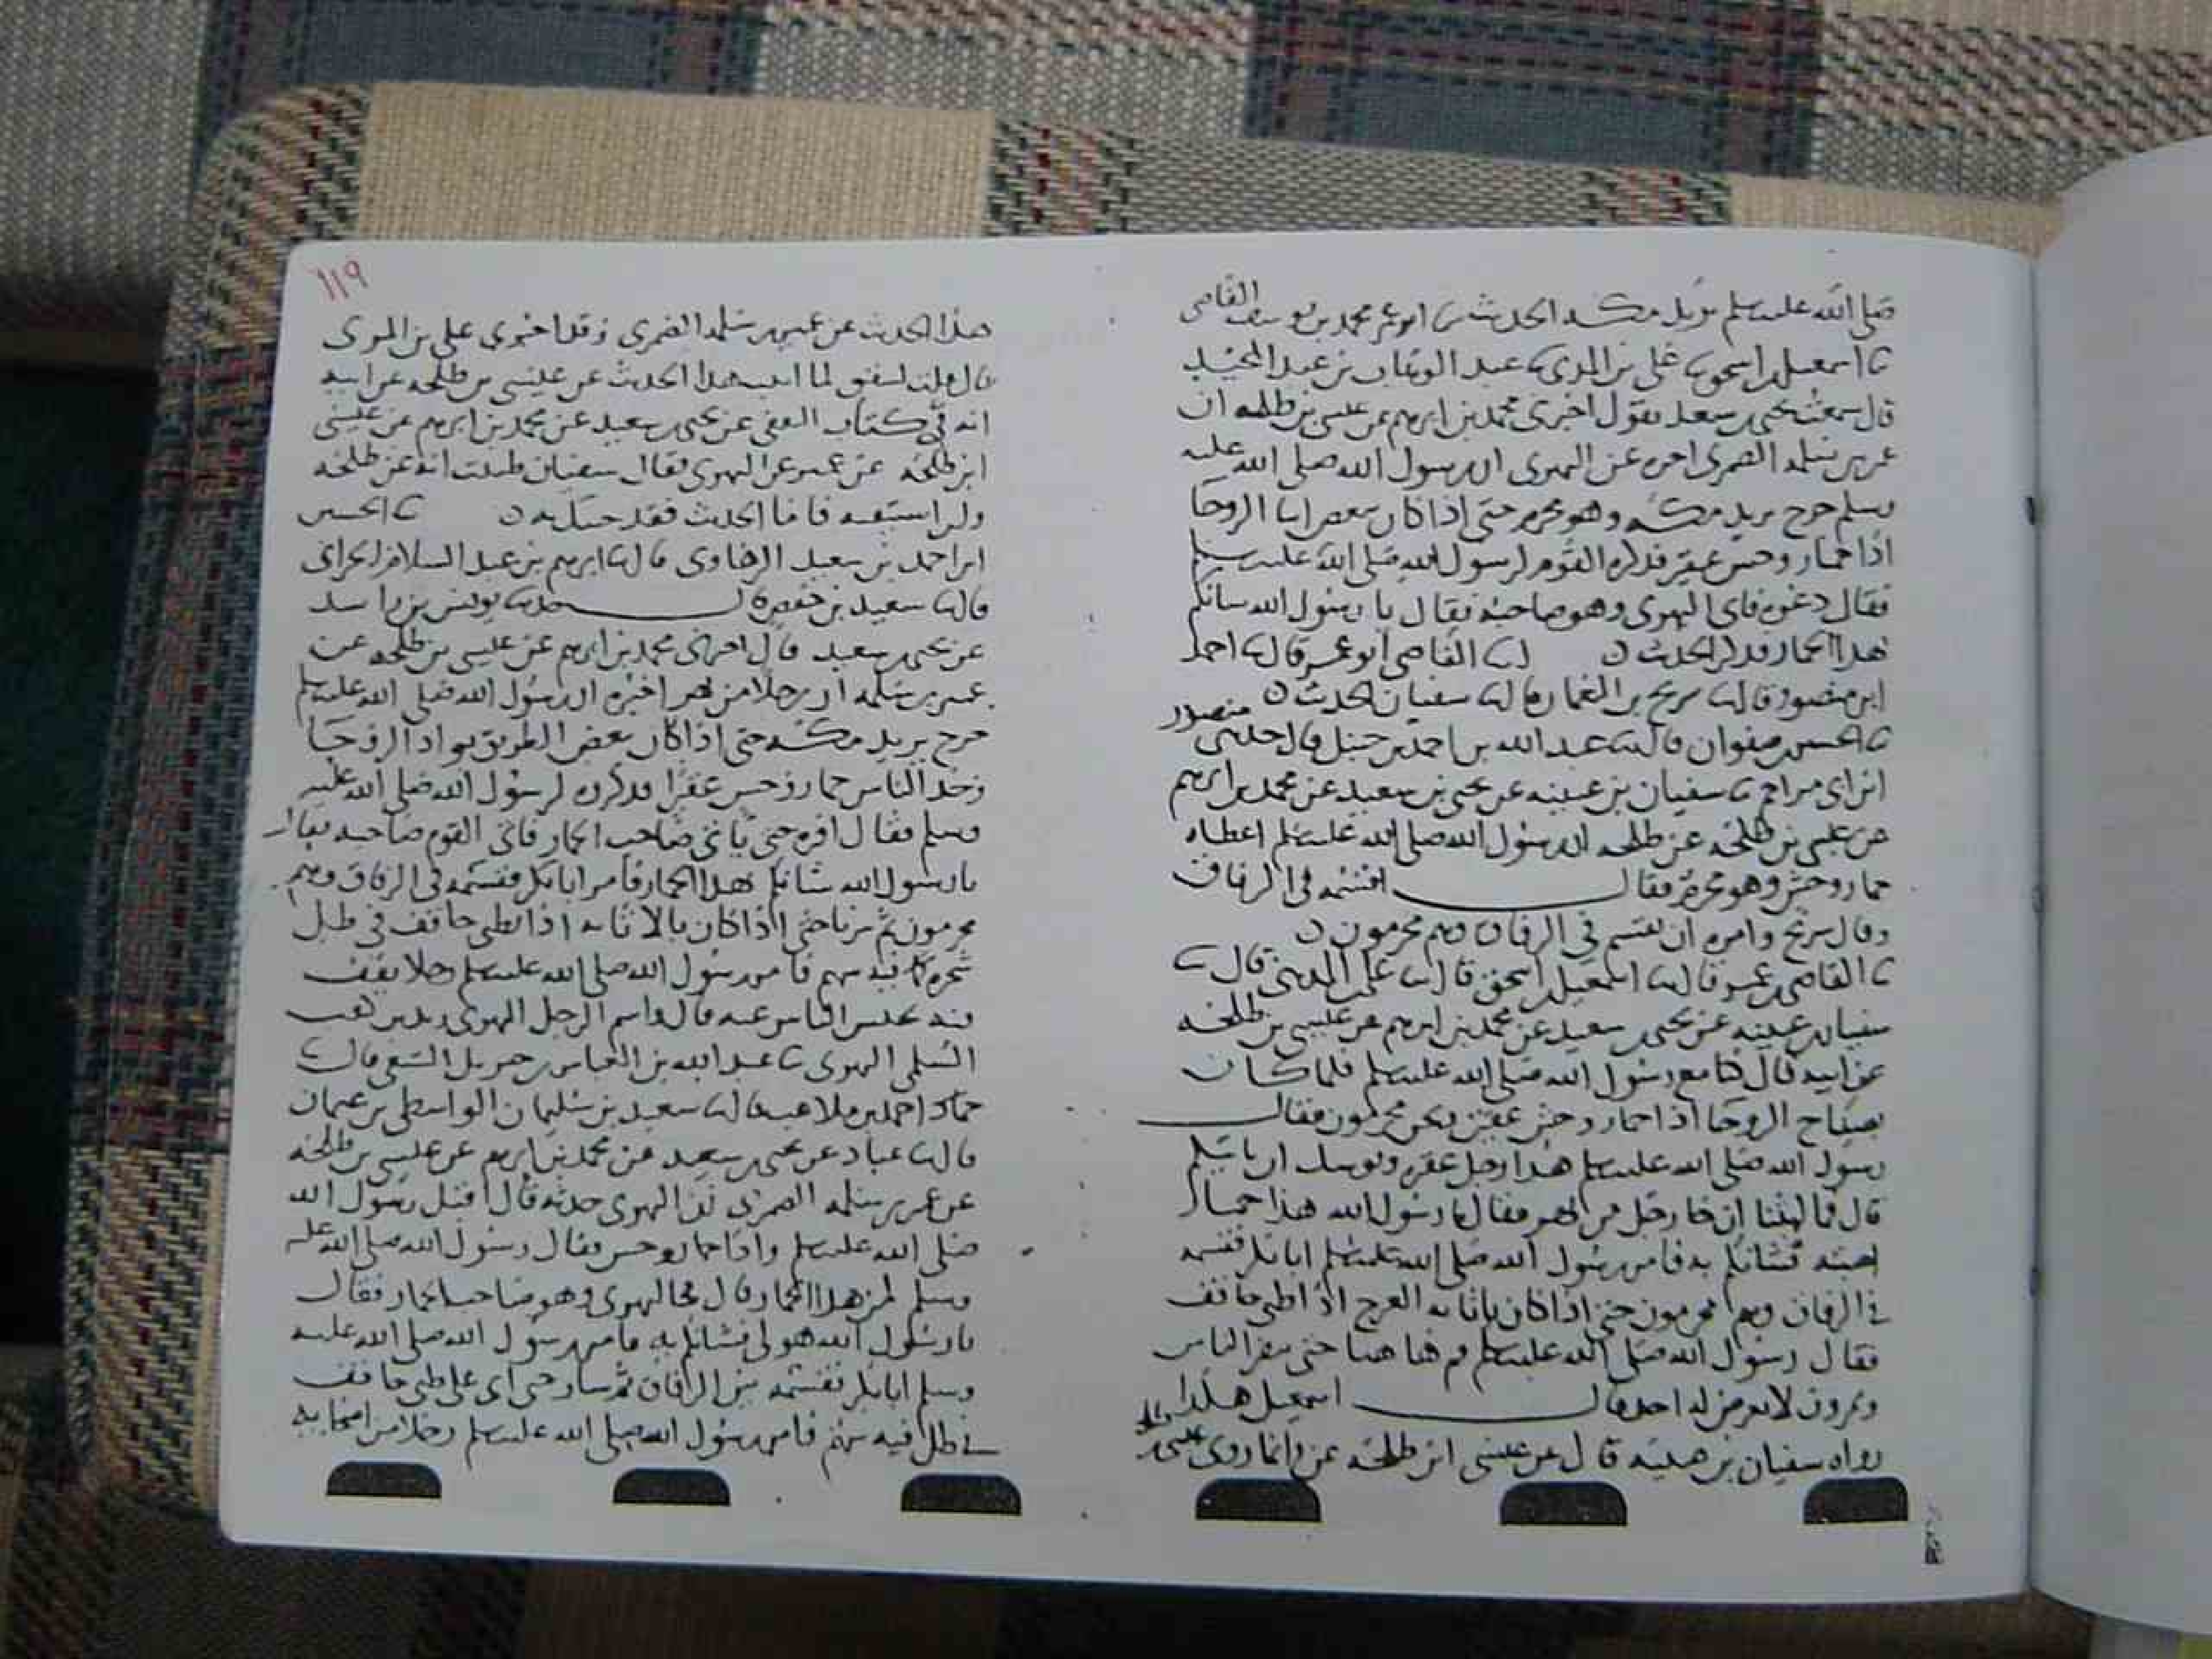 صلى الله عليه وسلم يريد مكة الحديث نا ابو عمر محمد بن يوسف القاضي
نا اسمعيل بن اسحق نا علي بن المديني نا عبد الوهاب بن عبد المجيد
قال سمعت يحيى بن سعيد يقول اخبرني محمد بن ابرهيم عن عيسى بن طلحة ان
عمير بن سلمه الضمري اخبره عن البهزي ان رسول الله صلى الله عليه
وسلم خرج يريد مكه وهو محرم حتى اذا كان ببعض الروحا
اذا حمار وحش عقير فذكره القوم لرسول الله صلى الله عليه وسلم
فقال دعوه فاتى البهزي وهو صاحبه فقال يا رسول الله شانكم
هذا الحمار فذكر الحديث نا القاضي ابو عمر قال نا احمد
ابن منصور قال نا سريج بن النعمان قال نا سفيان الحديث
نا الحسين بن صفوان قال نا عبد الله بن احمد بن حنبل قال حدثني منصور
ابن ابي مزاحم نا سفيان بن عيينه عن يحيى بن سعيد عن محمد بن ابرهيم
عن عيسى بن طلحه عن طلحه ان رسول الله صلى الله عليه وسلم اعطاه
حمار وحش وهو محرم فقال اقسمه في الرفاق
وقال سريج وامره ان يقسم في الرفاق وهم محرمون
نا القاضي عمر قال نا اسمعيل بن اسحق قال نا علي بن المديني قال نا
سفيان بن عيينه عن يحيى بن سعيد عن محمد بن ابرهيم عن عيسى بن طلحه
عن ابيه قال كنا مع رسول الله صلى الله عليه وسلم فلما كان
بصفاح الروحا اذا حمار وحش عقير ونحن محرمون فقال
رسول الله صلى الله عليه وسلم هذا رجل عقره ويوشك ان ياتيكم
قال فما لبثنا ان جا رجل من بهز فقال يا رسول الله هذا حمار
اصبته فشانكم به فامر رسول الله صلى الله عليه وسلم ابا بكر فقسمه
في الرفاق وهم محرمون حتى اذا كان باثايه العرج اذا ظبي حاقف
فقال رسول الله صلى الله عليه وسلم قم هاهنا حتى ينفر الناس
ويمرون لا يعرض له احد قال اسمعيل هكذا
رواه سفيان بن عيينه قال عن عيسى ابن طلحه عن وانما روى عيسى بن طلحه
١١٩
هذا الحديث عن عمير بن سلمه الضمري وقد اخبرني علي بن المديني
قال قلت لسفين لما املى هذا الحديث عن عيسى بن طلحه عن ابيه
انه في كتاب الثقفي عن يحيى بن سعيد عن محمد بن ابرهيم عن عيسى
ابن طلحه عن عمير عن البهزي فقال سفيان ظننت انه عن طلحه
ولم استيقنه فاما الحديث فقد حدثتك به نا الحسين
ابن احمد بن سعيد الرهاوي قال نا ابرهيم بن عبد السلام الحراني
قال نا سعيد بن حفص قال حدثنا يونس بن راشد
عن يحيى بن سعيد قال اخبرني محمد بن ابرهيم عن عيسى بن طلحه عن
عمير بن سلمه ان رجلا من بهز اخبره ان رسول الله صلى الله عليه وسلم
خرج يريد مكه حتى اذا كان ببعض الطريق بواد الروحا
وجد الناس حمار وحش عقيرا فذكروه لرسول الله صلى الله عليه
وسلم فقال اقروه حتى ياتي صاحب الحمار فاتى القوم صاحبه فقال
يا رسول الله شانكم هذا الحمار فامر ابا بكر فقسمه في الرفاق وهم
محرمون ثم مرنا حتى اذا كان بالاثايه اذا بظبي حاقف في ظل
شجره فيه سهم فامر رسول الله صلى الله عليه وسلم رجلا يقف
عنده يحبس الناس عنه قال واسم الرجل البهزي زيد بن كعب
السلمي البهزي نا عبد الله بن العباس بن جبريل الشمعي قال نا
حماد احمد بن ملاعب قال نا سعيد بن سليمان الواسطي بن عثمان
قال نا عباد عن يحيى بن سعيد عن محمد بن ابرهيم عن عيسى بن طلحه
عن عمير بن سلمه الضمري ان البهزي حدثه قال اقبل رسول الله
صلى الله عليه وسلم واذا حمار وحش فقال رسول الله صلى الله عليه
وسلم لمن هذا الحمار قال فجا البهزي وهو صاحب الحمار فقال
يا رسول الله هو لي فشانكم به فامر رسول الله صلى الله عليه
وسلم ابا بكر فقسمه بين الرفاق ثم سار حتى اتى على ظبي حاقف
في ظل فيه سهم فامر رسول الله صلى الله عليه وسلم رجلا من اصحابه